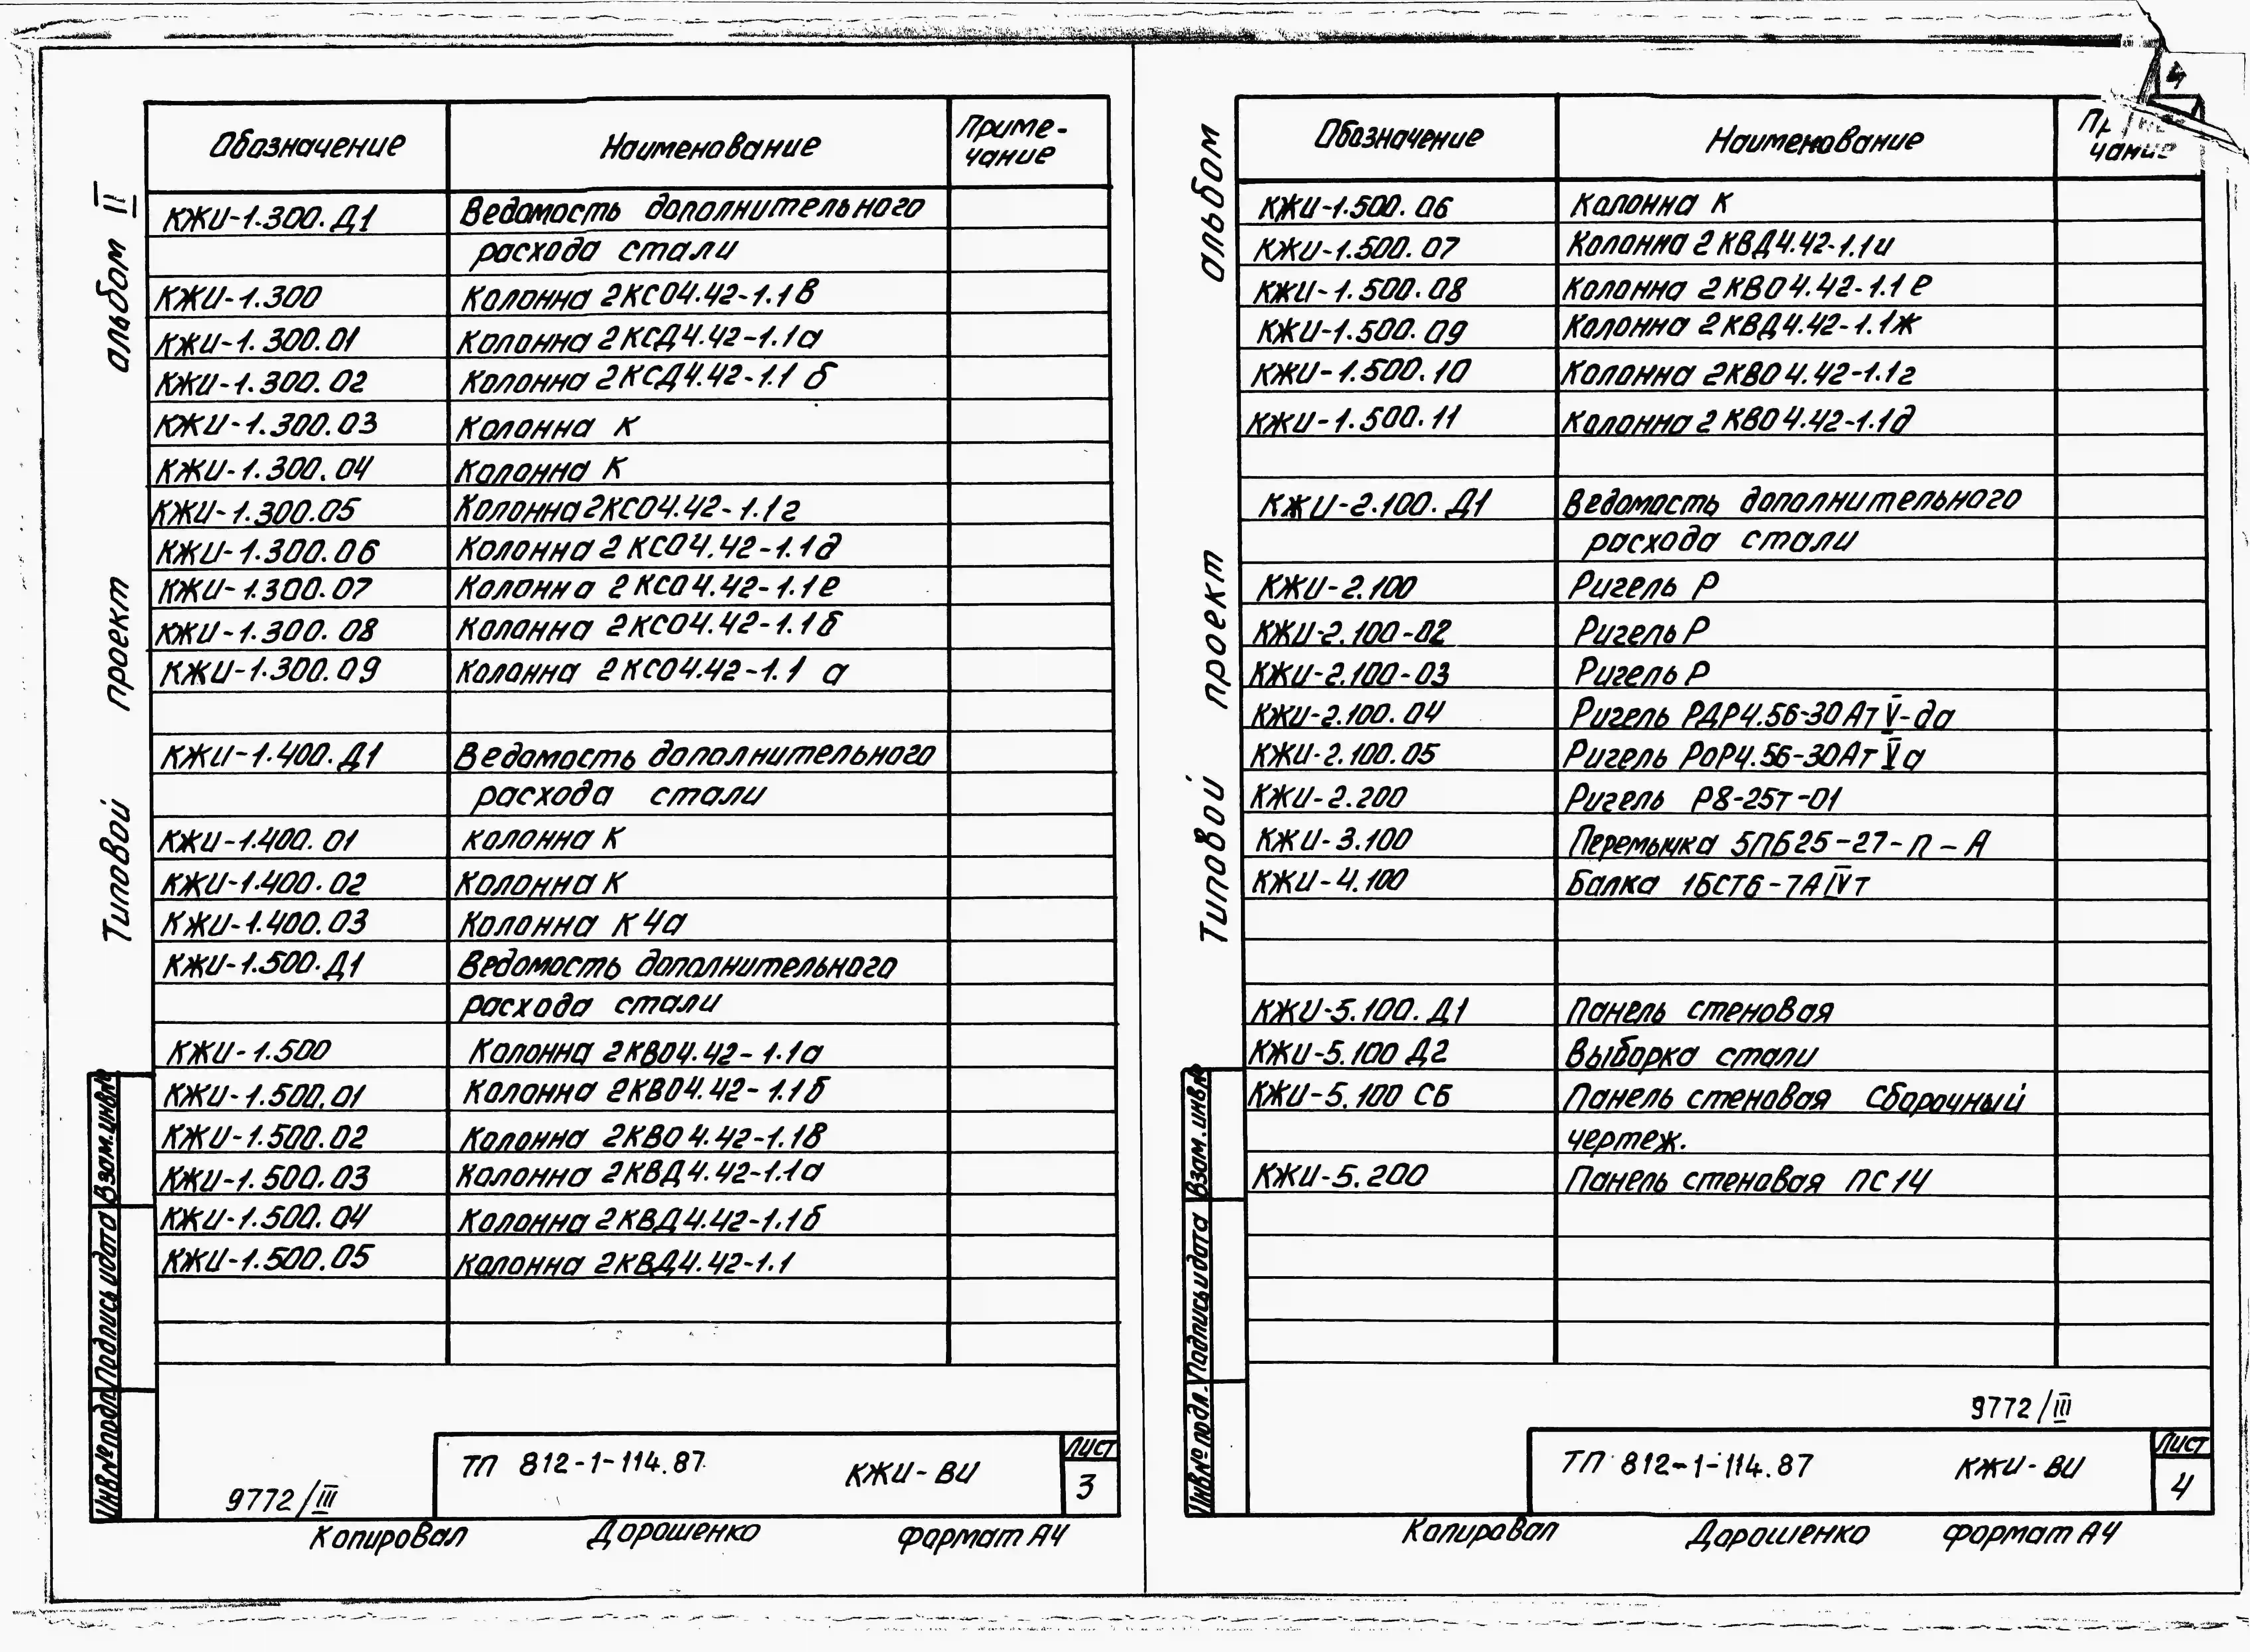 Типовой проект альбом II
Обозначение Наименование Приме-
чание
КЖИ-1.300.Д1 Ведомость дополнительного
расхода стали
КЖИ-1.300 Колонна 2КСО4.42-1.1в
КЖИ-1.300.01 Колонна 2КСД4.42-1.1а
КЖИ-1.300.02 Колонна 2КСД4.42-1.1 б
КЖИ-1.300.03 Колонна К
КЖИ-1.300.04 Колонна К
КЖИ-1.300.05 Колонна 2КСО4.42-1.1г
КЖИ-1.300.06 Колонна 2КСО4.42-1.1д
КЖИ-1.300.07 Колонна 2КСО4.42-1.1е
КЖИ-1.300.08 Колонна 2КСО4.42-1.1б
КЖИ-1.300.09 Колонна 2КСО4.42-1.1 а
КЖИ-1.400.Д1 Ведомость дополнительного
расхода стали
КЖИ-1.400.01 колонна К
КЖИ-1.400.02 Колонна К
КЖИ-1.400.03 Колонна К4а
КЖИ-1.500.Д1 Ведомость дополнительного
расхода стали
КЖИ-1.500 Колонна 2КВО4.42-1.1а
КЖИ-1.500.01 Колонна 2КВО4.42-1.1б
КЖИ-1.500.02 Колонна 2КВО4.42-1.1в
КЖИ-1.500.03 Колонна 2КВД4.42-1.1а
КЖИ-1.500.04 Колонна 2КВД4.42-1.1б
КЖИ-1.500.05 Колонна 2КВД4.42-1.1
Инв.№подл. Подпись и дата Взам.инв.№
9772/III
ТП 812-1-114.87 КЖИ-ВИ
Лист
3
Копировал Дорошенко формат А4
4
Типовой проект альбом
Обозначение Наименование
чание
КЖИ-1.500.06 Колонна К
КЖИ-1.500.07 Колонна 2КВД4.42-1.1и
КЖИ-1.500.08 Колонна 2КВО4.42-1.1е
КЖИ-1.500.09 Колонна 2КВД4.42-1.1ж
КЖИ-1.500.10 Колонна 2КВО4.42-1.1г
КЖИ-1.500.11 Колонна 2КВО4.42-1.1д
КЖИ-2.100.Д1 Ведомость дополнительного
расхода стали
КЖИ-2.100 Ригель Р
КЖИ-2.100-02 Ригель Р
КЖИ-2.100-03 Ригель Р
КЖИ-2.100.04 Ригель РДР4.56-30АтV-да
КЖИ-2.100.05 Ригель РОР4.56-30АтVа
КЖИ-2.200 Ригель Р8-25т-01
КЖИ-3.100 Перемычка 5ПБ25-27-п-А
КЖИ-4.100 Балка 1БСТ6-7АIVт
КЖИ-5.100.Д1 Панель стеновая
КЖИ-5.100 Д2 Выборка стали
КЖИ-5.100 СБ Панель стеновая Сборочный
чертеж.
КЖИ-5.200 Панель стеновая ПС14
Инв.№ подл. Подпись и дата Взам.инв.№
9772/III
ТП 812-1-114.87 КЖИ-ВИ
Лист
4
Копировал Дорошенко формат А4